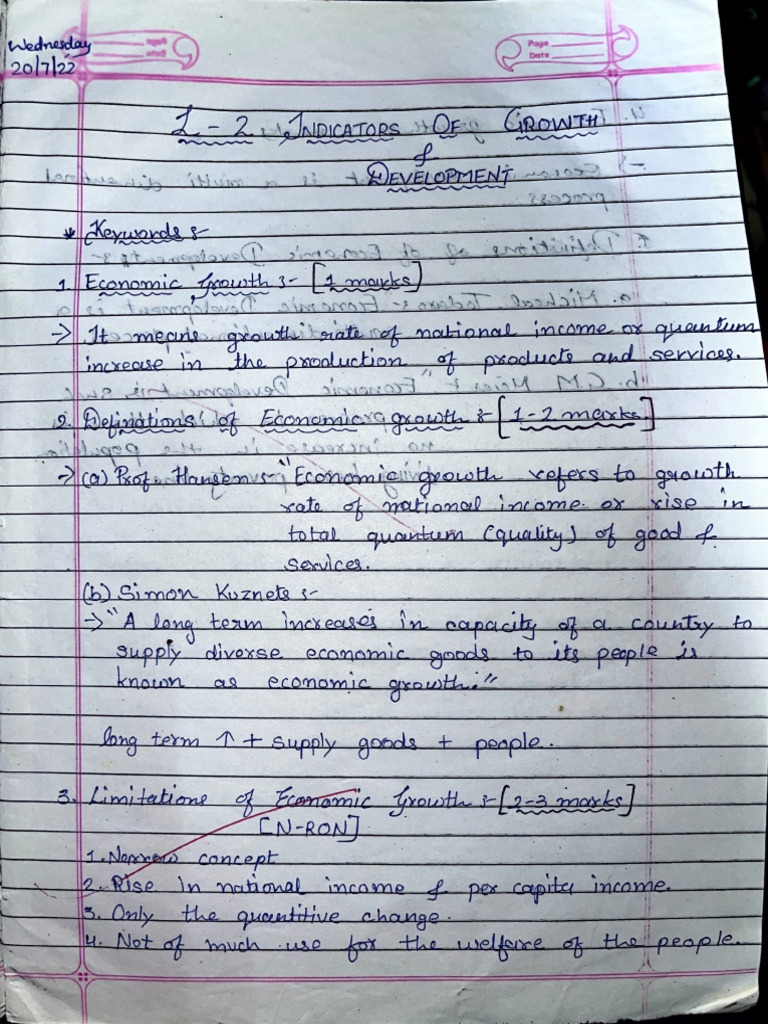 Wednesday
20/7/22
Page
Date
L - 2 INDICATORS OF GROWTH
&
DEVELOPMENT
* Keywords :-
1. Economic Growth :- [1 marks]
→ It means growth rate of national income or quantum
increase in the production of products and services.
2. Definations of Economic growth :- [1-2 marks]
→ (a) Prof. Hansen :- "Economic growth refers to growth
rate of national income or rise in
total quantum (quality) of good &
services.
(b) Simon Kuznets :-
→ "A long term increases in capacity of a country to
supply diverse economic goods to its people is
known as economic growth."
long term ↑ + supply goods + people.
3. Limitations of Economic Growth :- [2-3 marks]
[N-RON]
1. Narrow concept
2. Rise in national income & per capita income.
3. Only the quantitive change.
4. Not of much use for the welfare of the people.